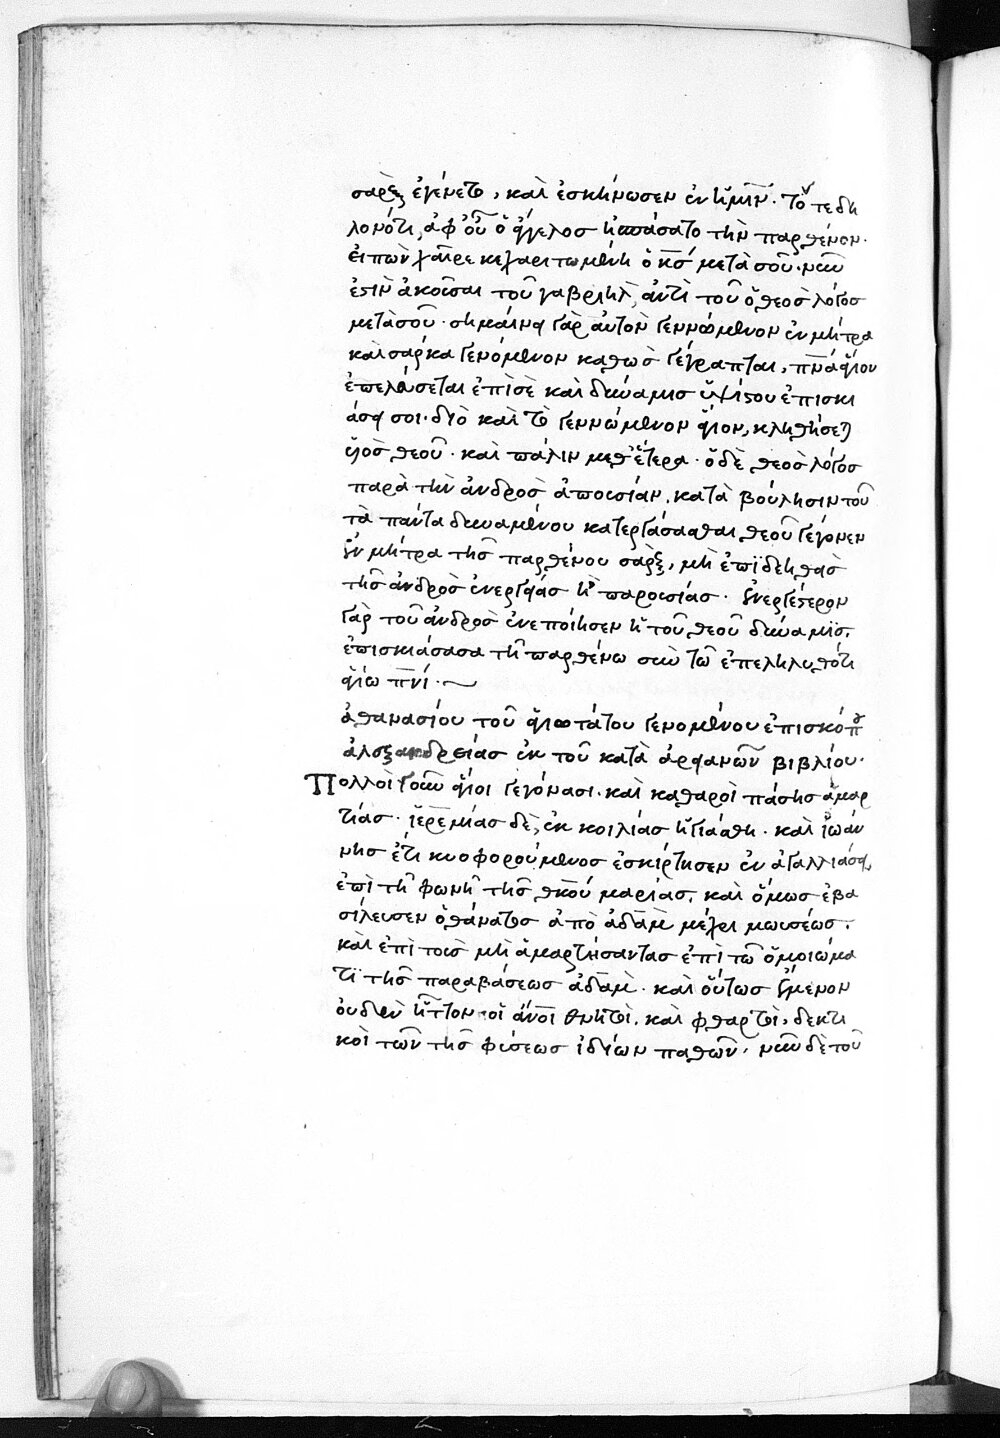 σὰρξ ἐγένετο, καὶ ἐσκήνωσεν ἐν ἡμῖν. τοῦτε δη
λονότι, ἀφ' οὗ ὁ ἄγγελος ἠσπάσατο τὴν παρθένον.
εἰπὼν χαῖρε κεχαριτωμένη ὁ κς μετὰ σοῦ. νῦν
ἐστὶν ἀκοῦσαι τοῦ γαβριὴλ, ἀντὶ τοῦ ὁ θεὸς λόγος
μετὰ σοῦ. σημαίνει γὰρ αὐτὸν γεννώμενον ἐν μήτρα
καὶ σάρκα γενόμενον καθὼς γέγραπται, πνα ἅγιον
ἐπελεύσεται ἐπὶ σὲ καὶ δύναμις ὑψίστου ἐπισκι
άσει σοι. διὸ καὶ τὸ γεννώμενον ἅγιον, κληθήσεται
υἱὸς θεοῦ. καὶ πάλιν μεθ' ἕτερα. ὁ δὲ θεὸς λόγος
παρὰ τὴν ἀνδρὸς ἀπουσίαν, κατὰ βούλησιν τοῦ
τὰ πάντα δυναμένου κατεργάσασθαι θεοῦ γέγονεν
ἐν μήτρα τῆς παρθένου σὰρξ, μὴ ἐπιδεηθεὶς
τῆς ἀνδρὸς ἐνεργείας ἢ παρουσίας. ἐνεργέστερον
γὰρ τοῦ ἀνδρὸς ἐνεποίησεν ἡ τοῦ θεοῦ δύναμις.
ἐπισκιάσασα τῆ παρθένω σὺν τῶ ἐπεληλυθότι
ἁγίω πνί.
ἀθανασίου τοῦ ἁγιωτάτου γενομένου ἐπισκόπου
ἀλεξανδρείας ἐκ τοῦ κατὰ ἀρειανῶν βιβλίου.
Πολλοὶ γοῦν ἅγιοι γεγόνασι. καὶ καθαροὶ πάσης ἁμαρ
τίας. ἱερεμίας δὲ, ἐκ κοιλίας ἡγιάσθη. καὶ ἰωάν
νης ἔτι κυοφορούμενος ἐσκίρτησεν ἐν ἀγαλλιάσει
ἐπὶ τῆ φωνῆ τῆς θκου μαρίας. καὶ ὅμως ἐβα
σίλευσεν ὁ θάνατος ἀπὸ ἀδὰμ μέχρι μωυσέως.
καὶ ἐπὶ τοὺς μὴ ἁμαρτήσαντας ἐπὶ τῶ ὁμοιώμα
τι τῆς παραβάσεως ἀδάμ. καὶ οὕτως ἔμενον
οὐδὲν ἧττον οἱ ἄνοι θνητοὶ, καὶ φθαρτοὶ, δεκτι
κοὶ τῶν τῆς φύσεως ἰδίων παθῶν. νῦν δὲ τοῦ